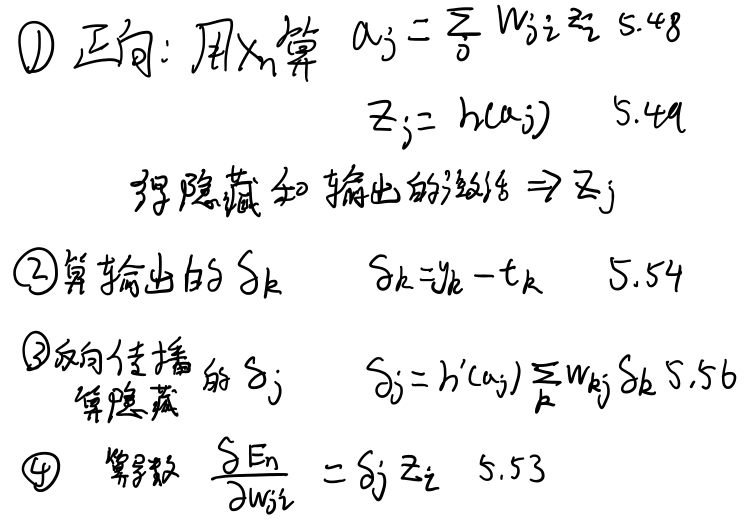 ① 正向: 用xₙ算 aⱼ = Σⱼ wⱼᵢ zᵢ 5.48
zⱼ = h(aⱼ) 5.49
得隐藏和输出的激活 ⇒ zⱼ
② 算输出的 δₖ δₖ = yₖ − tₖ 5.54
③ 反向传播 的 δⱼ δⱼ = h'(aⱼ) Σₖ wₖⱼ δₖ 5.56
算隐藏
④ 算导数 δEₙ/∂wⱼᵢ = δⱼ zᵢ 5.53